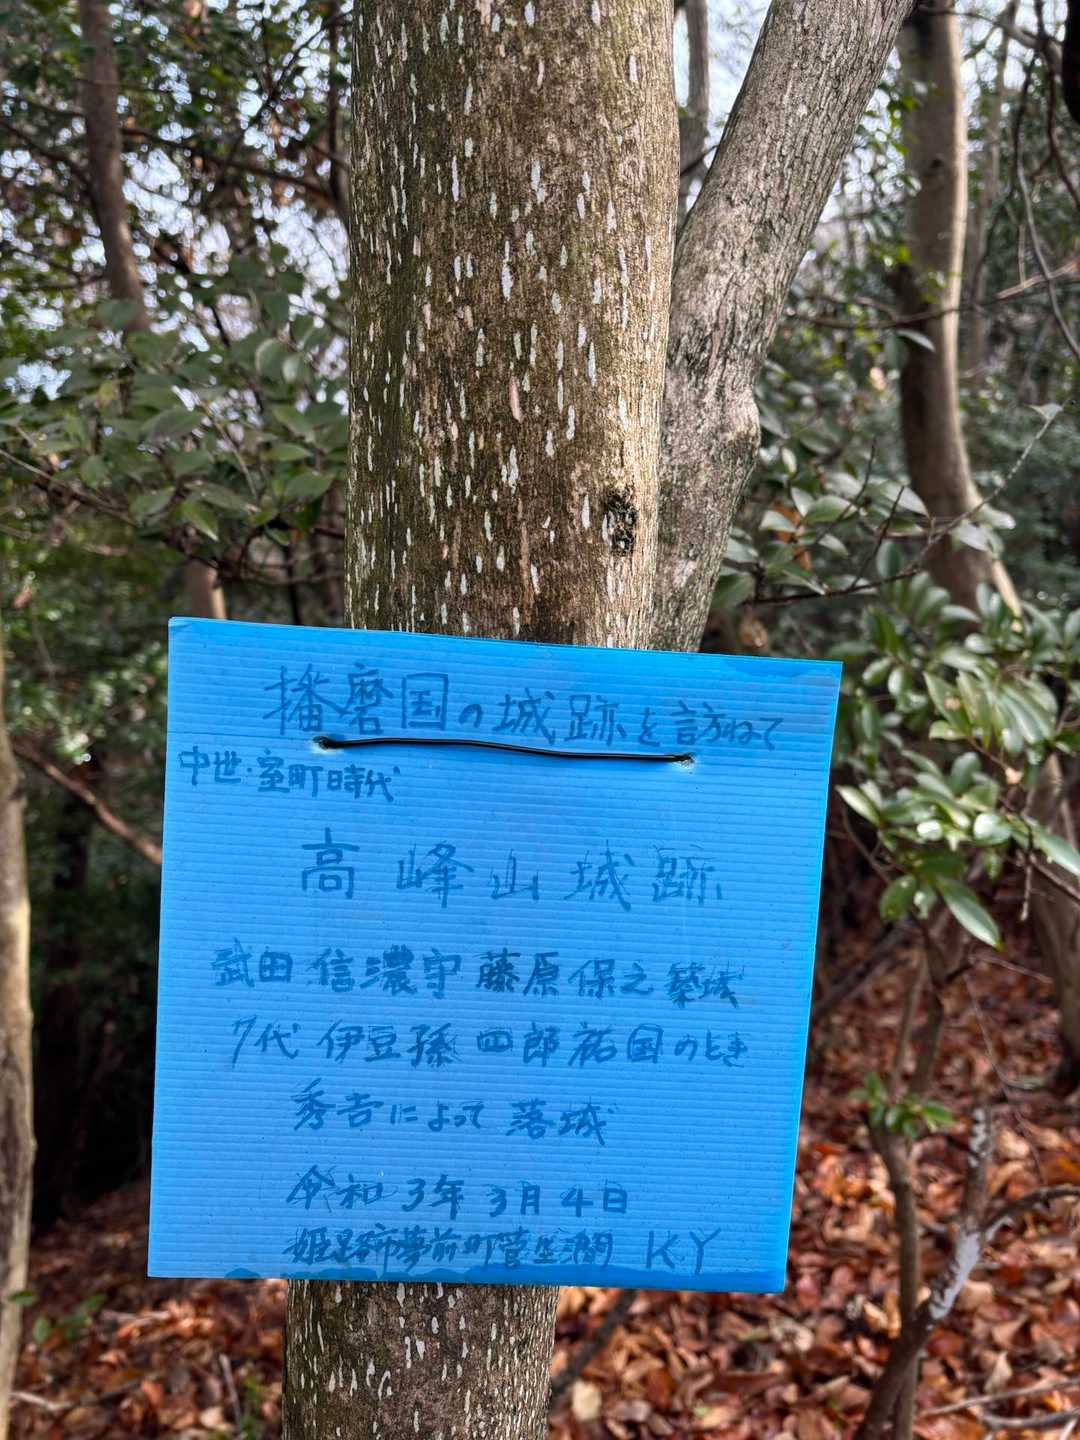 播磨国の城跡を訪ねて
中世・室町時代
高峰山城跡
武田信濃守藤原保之築城
7代伊豆孫四郎祐国のとき
秀吉によって落城
令和3年3月4日
姫路市夢前町菅生澗 K.Y